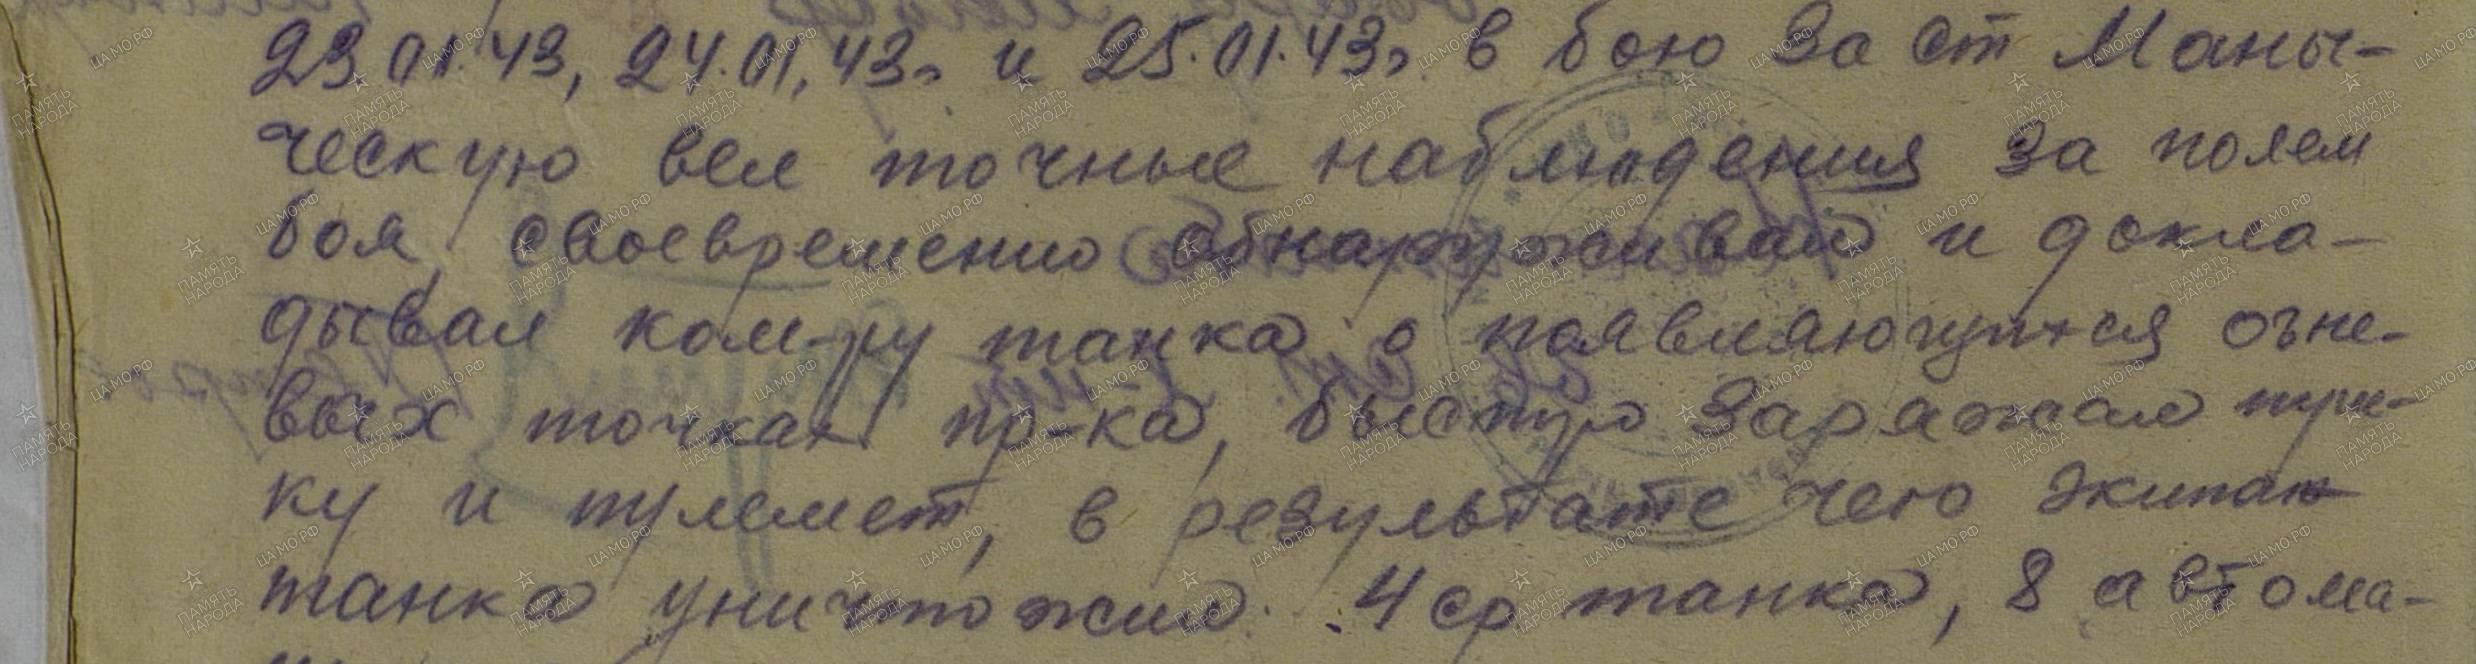 23.01.43, 24.01.43г. и 25.01.43г. в бою за ст Маны-
ческую вел точные наблюдения за полем
боя, своевременно обнаруживал и докла-
дывал ком-ру танка о появляющихся огне-
вых точках пр-ка, быстро заряжал пуш-
ку и пулемет, в результате чего экипаж
танка уничтожил. 4 ср танка, 8 автома-